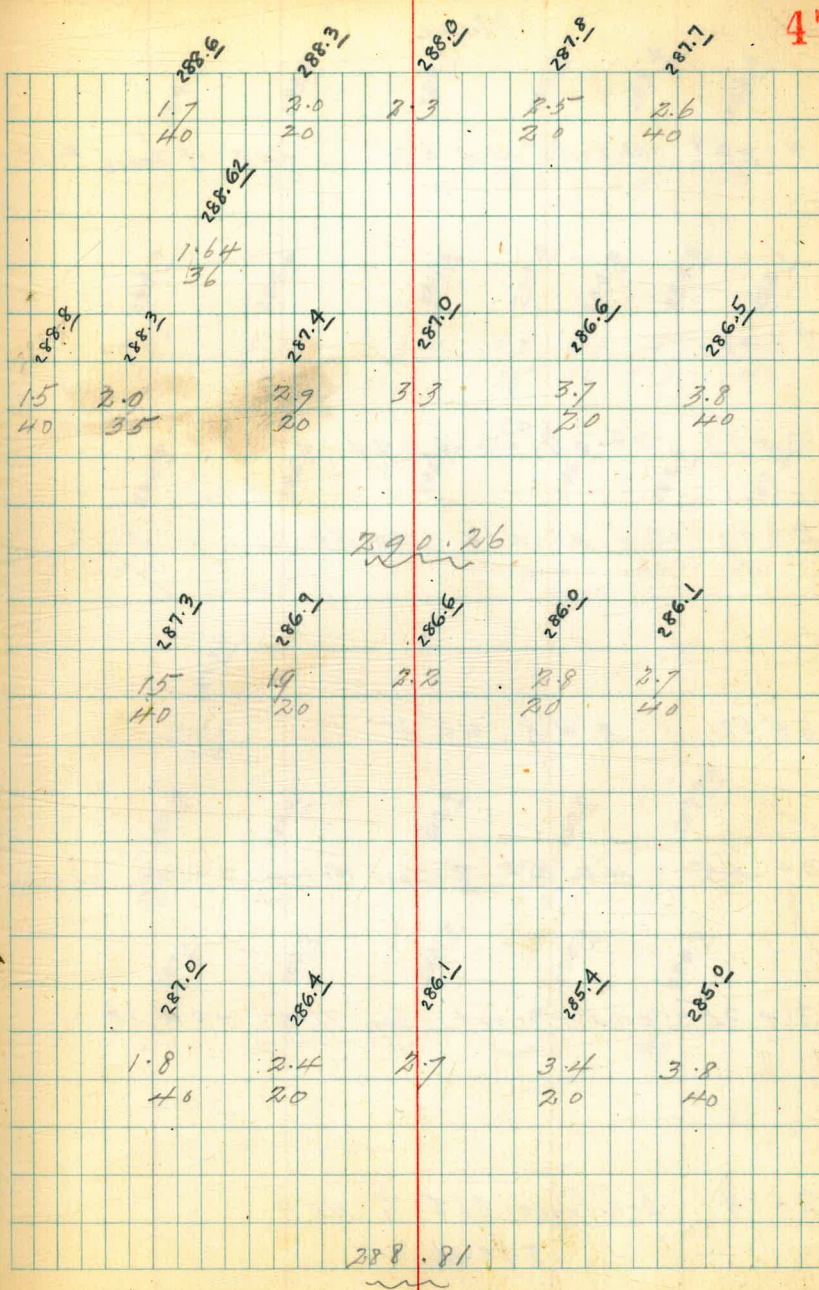 288.6 288.3 288.0 287.8 287.7
1.7 2.0 2.3 2.5 2.6
40 20 20 40
288.62
1.64
36
288.8 288.3 287.4 287.0 286.6 286.5
1.5 2.0 2.9 3.3 3.7 3.8
40 35 20 20 40
290.26
287.3 286.9 286.6 286.0 286.1
1.5 1.9 2.2 2.8 2.7
40 20 20 40
287.0 286.4 286.1 285.4 285.0
1.8 2.4 2.7 3.4 3.8
40 20 20 40
288.81